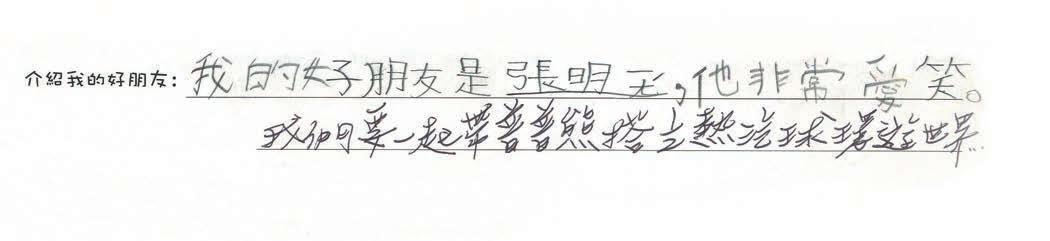 介紹我的好朋友：我的好朋友是張明玉，他非常愛笑。
我們要一起帶普普熊搭立熱汽球環遊世界…